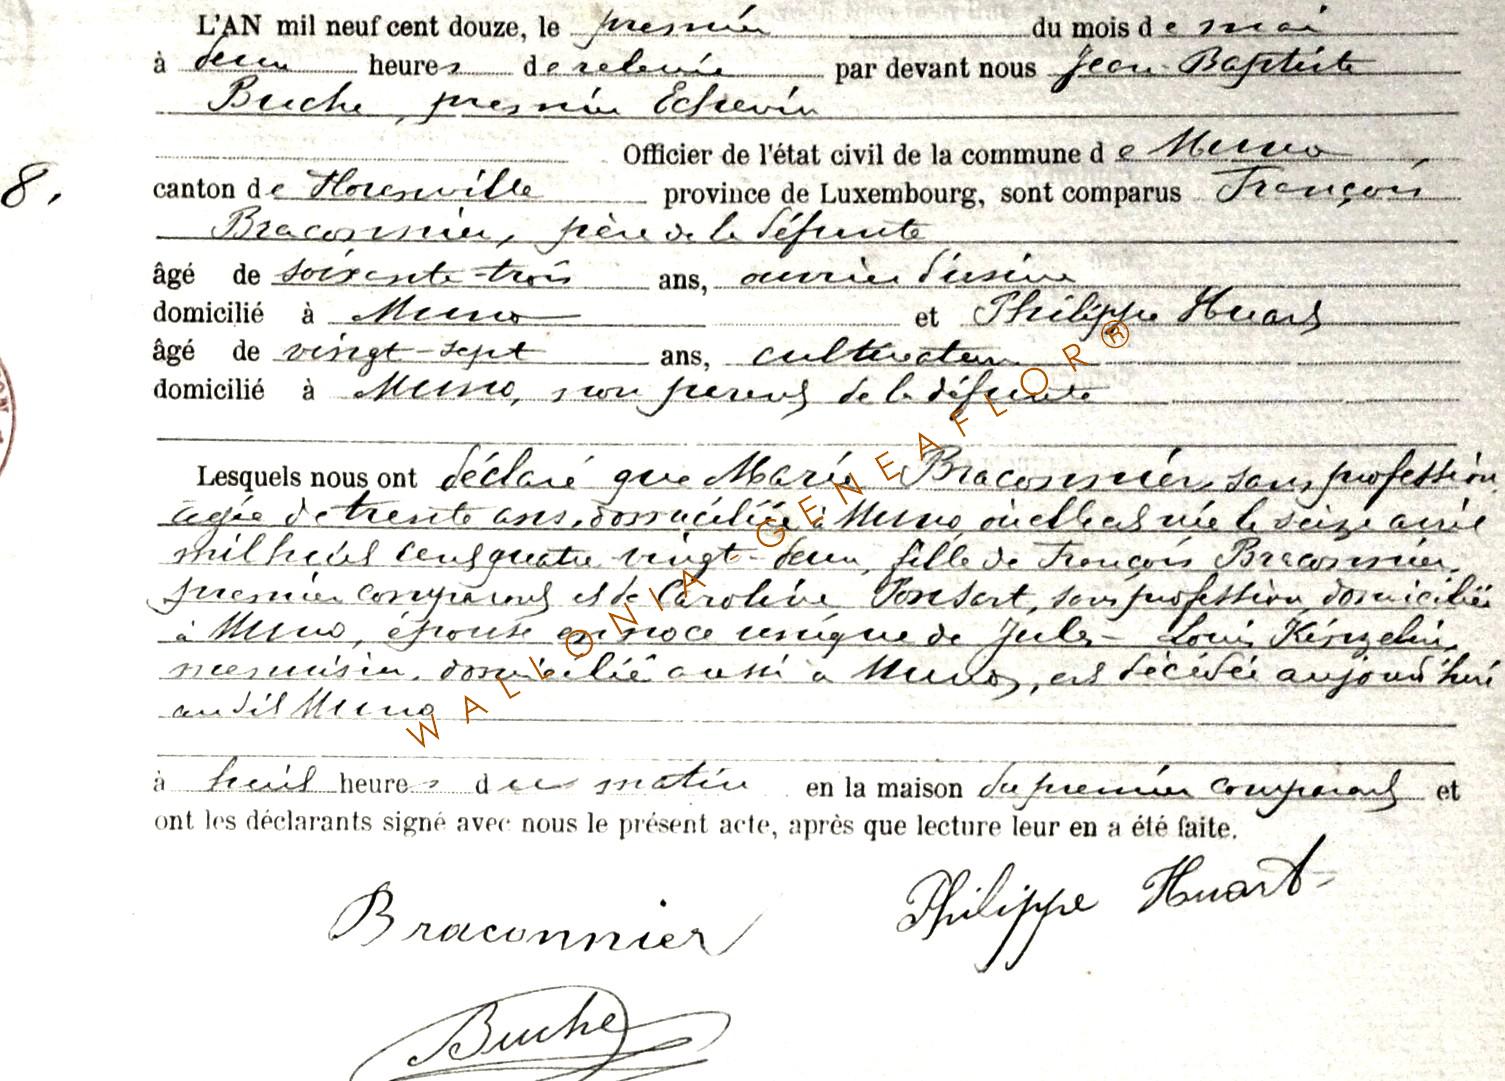 L'AN mil neuf cent douze, le premier du mois de mai
à deux heures de relevée par devant nous Jean-Baptiste
Buche, premier Echevin
Officier de l'état civil de la commune de Muno,
8.
canton de Florenville province de Luxembourg, sont comparus François
Braconnier, père de la défunte
âgé de soixante-trois ans, ouvrier d'usine
domicilié à Muno et Philippe Huart
âgé de vingt-sept ans, cultivateur
domicilié à Muno, non parent de la défunte
Lesquels nous ont déclaré que Marie Braconnier, sans profession,
agée de trente ans, domiciliée à Muno, où elle est née le seize avril
mil huit cent quatre vingt-deux, fille de François Braconnier,
premier comparant et de Caroline Ponsart, sans profession, domiciliée
à Muno, épouse en noce unique de Jules-Louis Kinzelin,
menuisier, domicilié aussi à Muno, est décédée aujourd'hui
au dit Muno
à huit heures du matin en la maison du premier comparant et
ont les déclarants signé avec nous le présent acte, après que lecture leur en a été faite.
Braconnier Philippe Huart
Buche
WALLONIA GENEAFLOR®